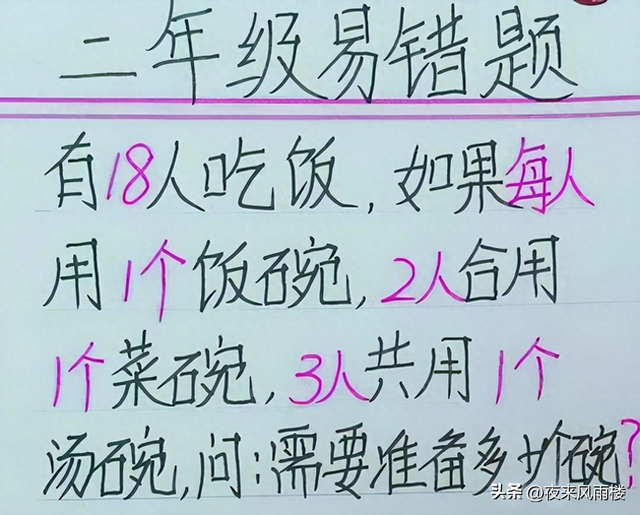 二年级易错题
有18人吃饭，如果每人
用1个饭碗，2人合用
1个菜碗，3人共用1个
汤碗，问：需要准备多少个碗？
头条@夜来风雨楼